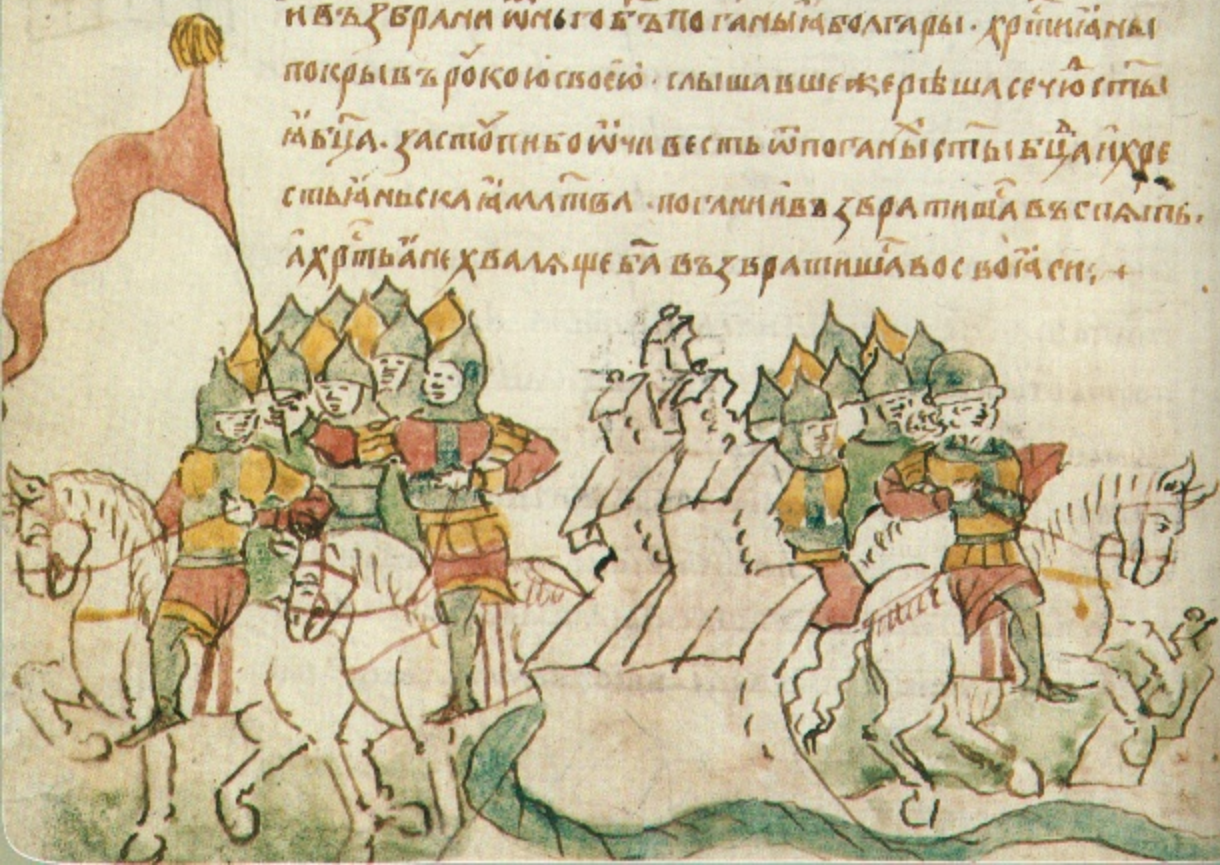 и възбрани ѡного бъ поганыꙗ болгары · хрⷭ҇тиꙗны
покрывъ рꙋкою своею · слышавше же рѣша се чюⷣ ст҃ы
ꙗ бц҃а · застꙋпи бо ѡчивесть ѿ поганы ст҃ы бц҃а и хре
стьꙗньскаꙗ мл҃тва · погании възвратишаⷭ҇ въспѧть ·
а хрⷭ҇тьꙗне хвалѧще ба҃ възвратишаⷭ҇ во своꙗси ·:·